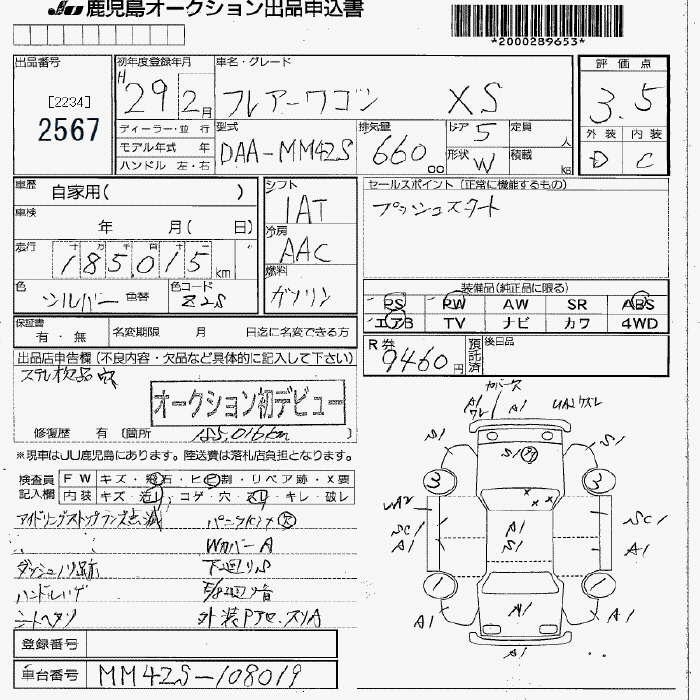 JU 鹿児島オークション出品申込書
*2000289653*
出品番号
[2234]
2567
初年度登録年月
H 29 2月
車名・グレード
フレアーワゴン XS
評価点
3.5
外装 内装
D C
ディーラー・並 行
モデル年式 年
ハンドル 左・右
型式
DAA-MM42S
排気量
660 cc
ドア 5
形状 W
定員 人
積載 KG
車歴 自家用( )
車検 年 月( 日)
走行 185,015 km
色 シルバー 色替
色コード Z2S
シフト
IAT
冷房
AAC
燃料
ガソリン
セールスポイント(正常に機能するもの)
プッシュスタート
装備品(純正品に限る)
PS PW AW SR ABS
エアB TV ナビ カワ 4WD
保証書 有・無
名変期限 月 日迄に名変できる方
R券 9460円
預託済
後日品
出品店申告欄(不良内容・欠品など具体的に記入して下さい)
オークション初デビュー
修復歴 有 [箇所 185,016km ]
※現車はJU鹿児島にあります。陸送費は落札店負担となります。
検査員記入欄
FW キズ・飛石・ヒビ割・リペア跡・X要
内装 キズ・汚れ・コゲ・穴・スレ・キレ・破レ
アイドリングストップランプ点滅
パンクキット欠
WカバーA
ダッシュノリ跡
下廻りS
ハンドルハゲ
シートヘタリ
登録番号
車台番号 MM42S-108019
A1
ワレ
A1
カバーズレ
S1
S1
S1
3
3
A1
S1
UA2
SC1
A1
SC1
A1
1
1
A1
A1
A1
A1